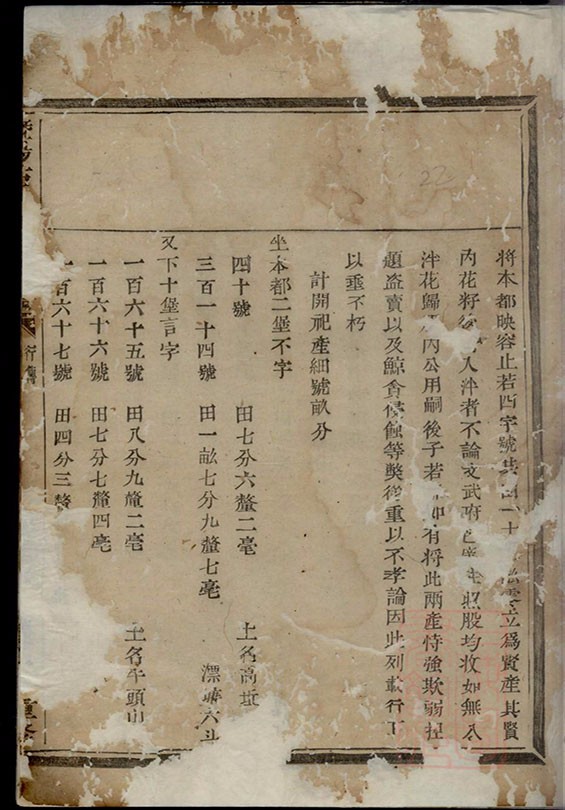 將本都映容止若四字號共田一十立為賢產其賢
內花籽後入泮者不論文武府邑照股均收如無人
泮花歸內公用嗣後子若有將此兩產恃強欺弱捏
題盜賣以及鯨貪侵蝕等獘從重以不孝論因此列載行下
以垂不朽
計開祀產細號畝分
坐本都二堡不字
四十號 田七分六釐二毫 土名高址
三百一十四號 田一畝七分九釐七毫 漂塘六斗
又下十堡言字
一百六十五號 田八分九釐二毫 土名牛頭山
一百六十六號 田七分七釐四毫
一百六十七號 田四分三釐
行
重修
22